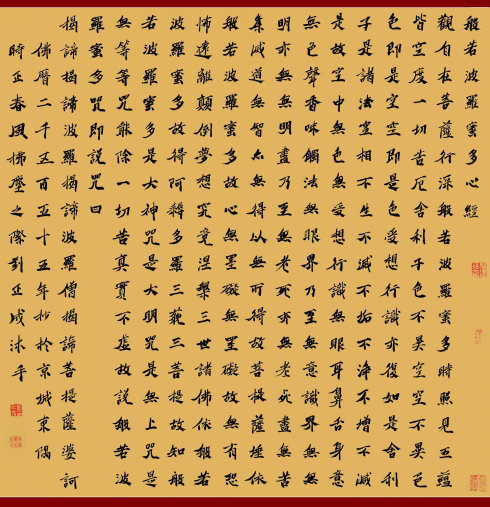 般若波羅蜜多心經
觀自在菩薩行深般若波羅蜜多時照見五蘊
皆空度一切苦厄舍利子色不異空空不異色
色即是空空即是色受想行識亦復如是舍利
子是諸法空相不生不滅不垢不淨不增不減
是故空中無色無受想行識無眼耳鼻舌身意
無色聲香味觸法無眼界乃至無意識界無無
明亦無無明盡乃至無老死亦無老死盡無苦
集滅道無智亦無得以無所得故菩提薩埵依
般若波羅蜜多故心無罣礙無罣礙故無有恐
怖遠離顛倒夢想究竟涅槃三世諸佛依般若
波羅蜜多故得阿耨多羅三藐三菩提故知般
若波羅蜜多是大神咒是大明咒是無上咒是
無等等咒能除一切苦真實不虛故說般若波
羅蜜多咒即說咒曰
揭諦揭諦波羅揭諦波羅僧揭諦菩提薩婆訶
佛曆二千五百五十五年抄於京城東隅
時正春風拂塵之際劉正成沐手